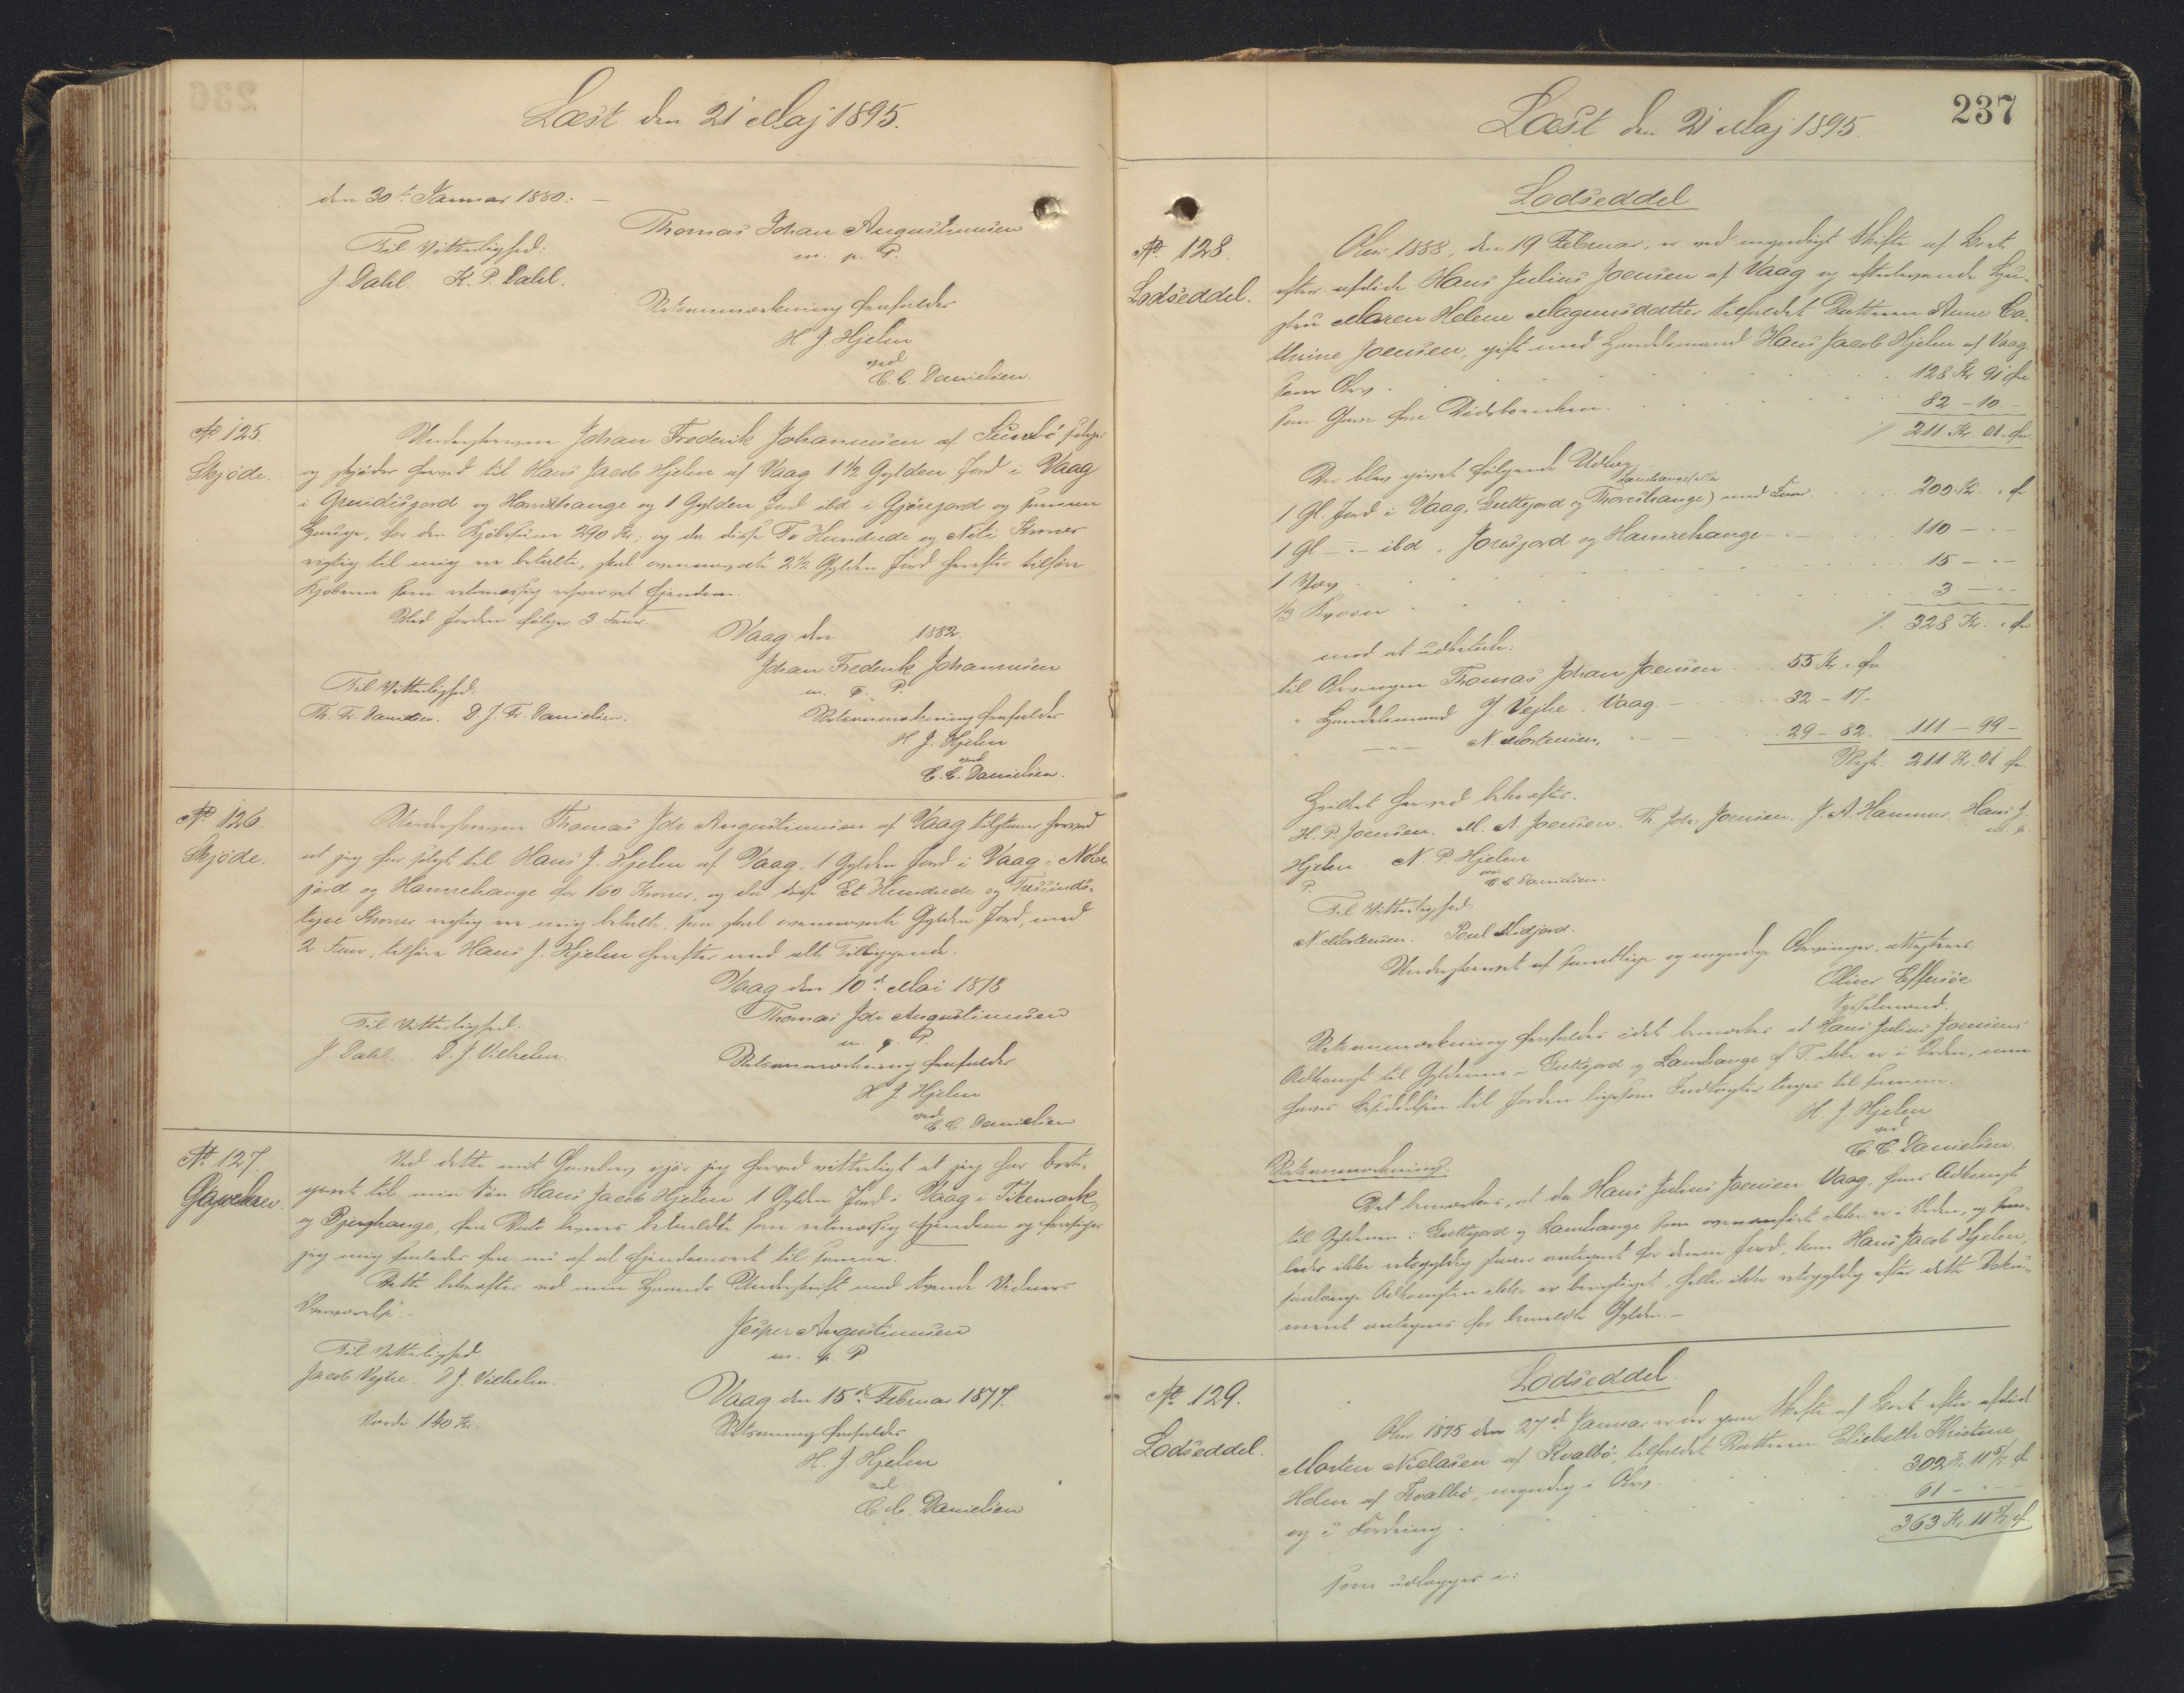 Læst den 21' Maj 1895.
den 30t Januar 1880: –
Til Vitterlighed:
Thomas Johan Augustinusen
m. p. P.
J. Dahl. K. P. Dahl.
Retsanmærkning frafaldes
H. J. Hjelm
ved
C. C. Danielsen.
No 125.
Skjøde.
Underskrevne Johan Frederik Johannesen af Sumbø sælger
og skjøder herved til Hans Jacob Hjelm af Vaag 1 1/2 Gylden Jord i Vaag
i og 1 Gylden Jord ibd i Gjørejord og samme
Hauge, for den Kjøbesum 290 Kr; og da disse To Hundrede og Niti Kroner
rigtig til mig ere betalte, skal ovennævnte 2 1/2 Gylden Jord herefter tilhøre
Kjøberen som retmæssig erhvervet Ejendom.
Med Jorden følger 3 Faar.
Vaag den 1882.
Johan Frederik Johannesen
m. p. P.
Til Vitterlighed.
Th. Fr. Danielsen. D. J. Fr. Danielsen.
Retsanmærkning frafaldes
H. J. Hjelm
ved
C. C. Danielsen.
No 126.
Skjøde.
Underskrevne Thomas Joh Augustinusen af Vaag tilstaaer herved
at jeg har solgt til Hans J. Hjelm af Vaag, 1 Gylden Jord i Vaag i
jord og Hamrehauge for 160 Kroner, og da disse Et Hundrede og Tressinds-
tyve Kroner rigtig ere mig betalte, saa skal ovennævnte Gylden Jord, med
2 Faar, tilhøre Hans J. Hjelm herefter med alt Tilliggende.
Vaag den 10d Mai 1878
Thomas Joh Augustinusen
m. p. P.
Til Vitterlighed.
J. Dahl. D. J. Vilhelm.
Retsanmærkning frafaldes
H. J. Hjelm
ved
C. C. Danielsen
No 127.
Gavebrev.
Ved dette mit Gavebrev gjør jeg herved vitterligt at jeg har bort-
givet til min Søn Hans Jacob Hjelm 1 Gylden Jord i Vaag i
og
jeg mig saaledes fra nu af al Ejendomsret til samme.
Dette bekræftes ved min Haands Underskrift med tvende Vidners
Nærværelse. –
Jesper Augustinusen
m. p. P
Til Vitterlighed.
Jacob Vejhe. D. J. Vilhelm.
Vaag den 15d Februar 1877.
Værdi 140 Kr.
frafaldes
H. J. Hjelm
ved
C. C. Danielsen
Læst den 21' Maj 1895.
237
Lodseddel
No 128.
Lodseddel.
Aar 1888, den 19 Februar, er ved myndigt Skifte af Boet
efter afdøde Hans Julius Joensen af Vaag og efterlevende Hu-
stru Maren Helene Magnusdatter tilfaldet Datteren Anne Ca-
thrine Joensen, gift med Handelsmand Hans Jacob Hjelm af Vaag
som Arv . . . 128 Kr 91 Øre
som Gave fra . . . 82 – 10 –
/. 211 Kr. 01 Øre.
Der blev givet følgende Udlæg
1 Gl. Jord i Vaag, med Faar . . . 200 Kr. " Ø
1 Gl – " – ibd. Joresjord og Hamrehauge – . . . 110 – " –
1 . . . 15 – " –
1/3 . . . 3 – " –
/. 328 Kr. " Øre
mod at udbetale:
til Arvingen Thomas Johan Joensen . . . 55 Kr. " Øre
" Handelsmand J. Vejhe, Vaag – . . . 32 – 17 –
– " – N. Mortensen, – . . . 29 – 82. 111 – 99 –
211 Kr. 01 Øre.
Hvilket herved bekræftes.
H. P. Joensen. M. A Joensen. Th. Joh. Joensen. J. A. Hammer. Hans J.
m. p.
Hjelm N. P. Hjelm
P. ved
C. C. Danielsen.
Til Vitterlighed.
N. Mortensen. Poul Midjord.
Underskrevet af samtlige og myndige Arvinger, attesteres
Oliver Effersøe
Sysselmand.
Retsanmærkning frafaldes idet bemærkes at Hans Julius Joensens
Adkomst til Gyldenen i d. T. ikke er i Orden, men
haves Besiddelsen til Jorden ligesom Indtægter tages til samme.
H. J. Hjelm
ved
C. C. Danielsen.
Retsanmærkning.
Det bemærkes, at da Hans Julius Joensen Vaag, hans Adkomst
til Gyldenen i som ovenanført ikke er i Orden, og saa-
ledes ikke retsgyldig staaer antegnet for denne Jord, kan Hans Jacob Hjelm,
saalænge Adkomsten ikke er berigtiget, heller ikke retsgyldig efter dette Doku-
ment antegnes for bemeldte Gylden. –
Lodseddel.
No 129.
Lodseddel.
Aar 1895 den 27d Januar er der Skifte af Boet efter afdøde
Morten Nielasen af Kvalbø, tilfaldet Datteren Elisebeth Kristine
Holm af Kvalbø, myndig i Arv. . . . 302 Kr. 11 5/7 Ø
og i Fordring . . . 61 – " –
363 Kr. 11 5/7 Ø.
som udlægges i: